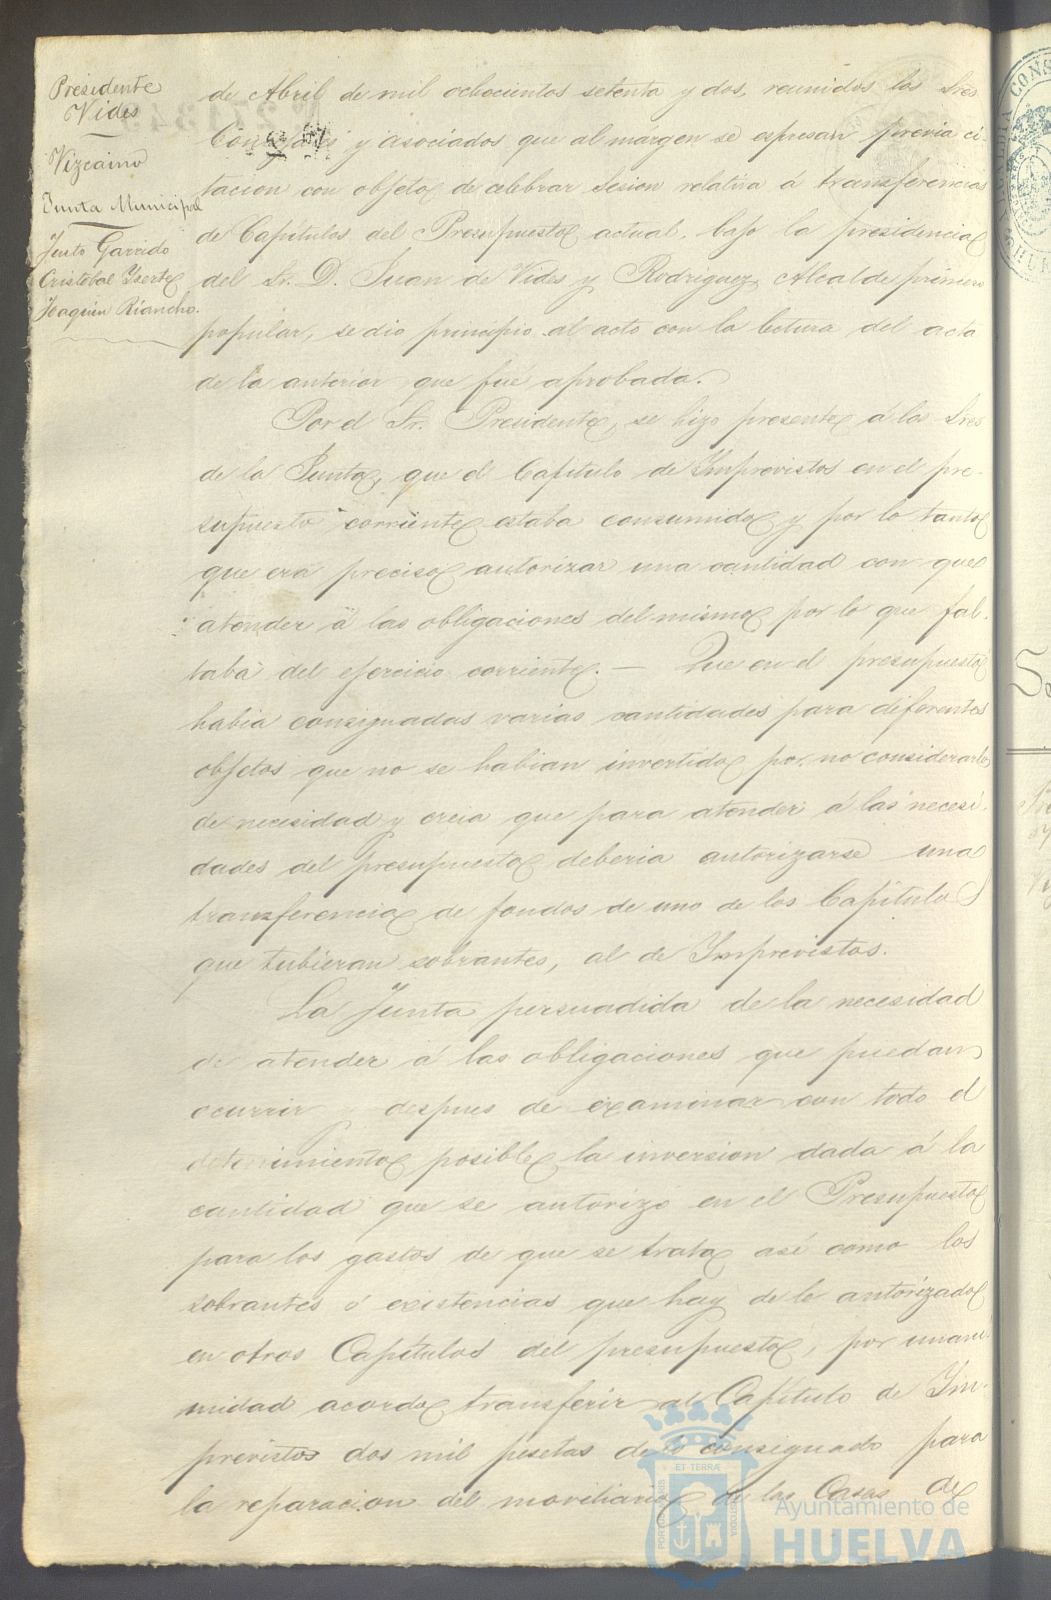 Presidente
Vides
Vizcaino
Junta Municipal
Justo Garrido
Cristobal Yserte
Joaquin Riancho.
de Abril de mil ochocientos setenta y dos, reunidos los Sres
Concejales y asociados que al margen se espresan previa ci-
tacion con objeto de celebrar Sesion relativa á transferencias
de Capítulos del Presupuesto actual. bajo la presidencia
del Sr. D. Juan de Vides y Rodriguez, Alcalde primero
popular, se dio principio al acto con la lectura del acta
de la anterior que fué aprobada.
Por el Sr. Presidente, se hizo presente á los Sres
de la Junta, que el Capitulo de Imprevistos en el pre-
supuesto corriente estaba consumido y por lo tanto
que era preciso autorizar una cantidad con que
atender á las obligaciones del mismo por lo que fal-
taba del ejercicio corriente. — Que en el presupuesto
habia consignadas varias cantidades para diferentes
objetos que no se habian invertido por no considerarlo
de necesidad y creia que para atender á las necesi-
dades del presupuesto deberia autorizarse una
transferencia de fondos de uno de los Capítulos
que tubieran sobrantes, al de Imprevistos.
La Junta persuadida de la necesidad
de atender á las obligaciones que puedan
ocurrir y despues de examinar con todo el
detenimiento posible la inversion dada á la
cantidad que se autorizó en el Presupuesto
para los gastos de que se trata así como los
sobrantes ó existencias que hay de lo autorizado
en otros Capítulos del presupuesto, por unani-
midad acordo transferir al Capítulo de Im-
previstos dos mil pesetas de lo consignado para
la reparacion del moviliario de las Casas de
Ayuntamiento de
HUELVA